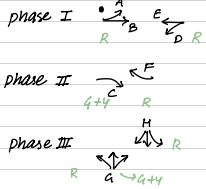 phase I A B E D
R R
phase II C F
G+Y R
phase III H
R G G+Y R